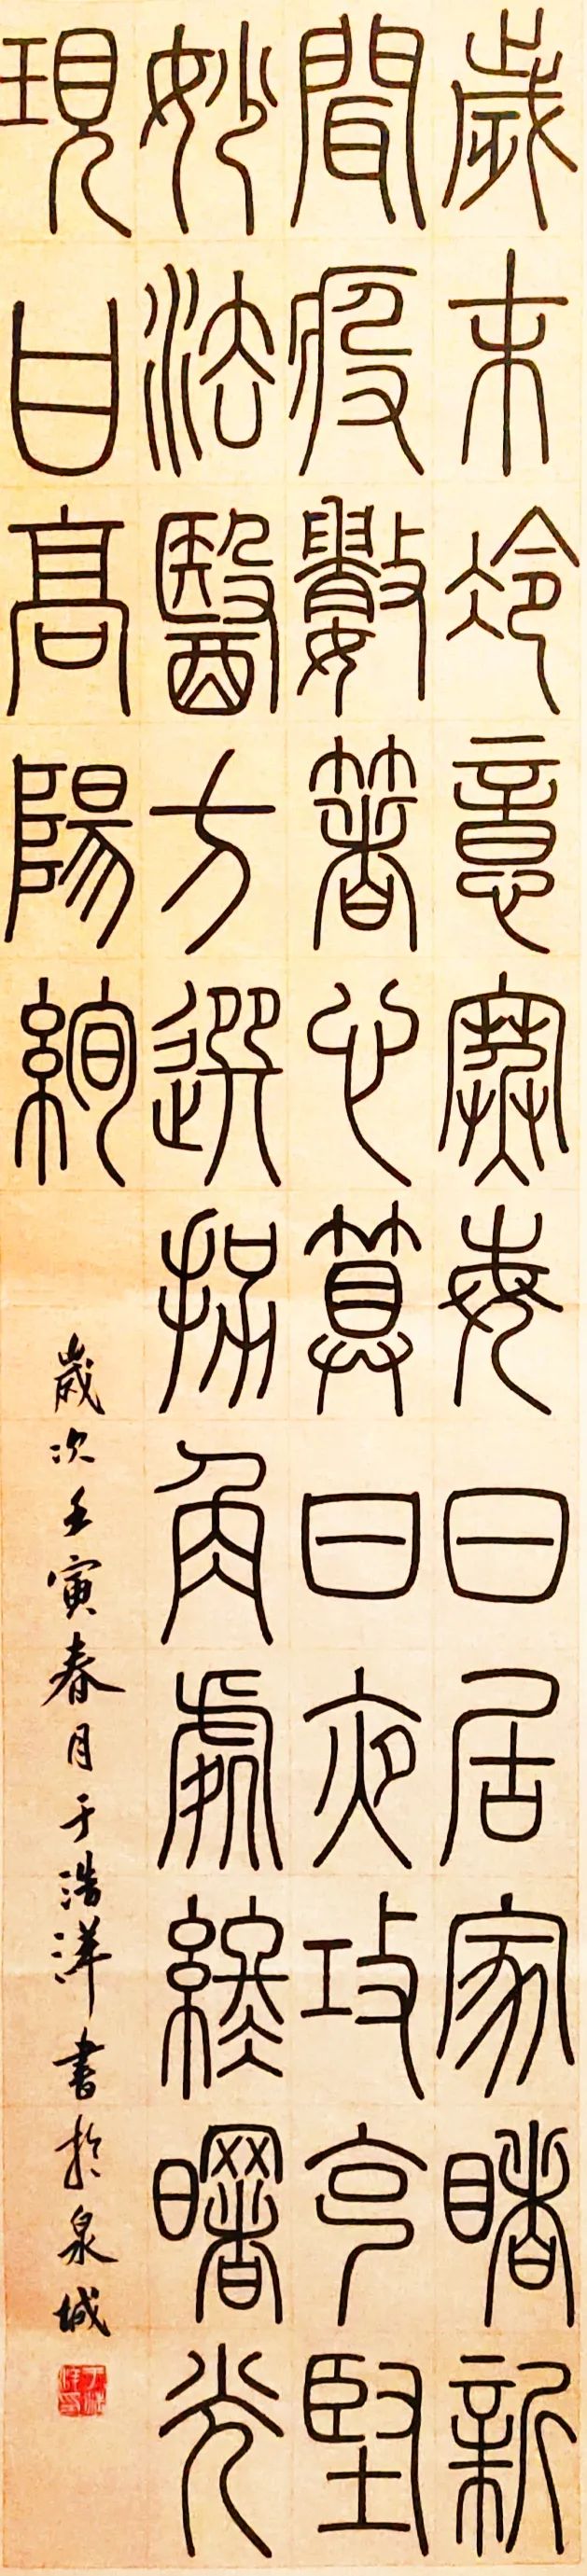 歲末冷意寒每日居家睹新
聞疫數著心算日夜攻克堅
妙法醫方選拐角處曙光
現日高陽絢
歲次壬寅春月于浩洋書於泉城